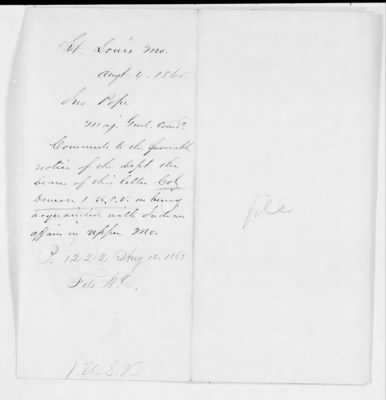 St. Louis Mo.
Augt. 6. 1865
Jno. Pope
Maj. Genl. Comd.
Commends to the favorable
notice of the Dept the
bearer of this letter Col
Dimon 1 U.S.V. as being
acquainted with Indian
affairs in upper Mo.
P. 1222 Aug 12. 1865
File
file
1 U.S.V.